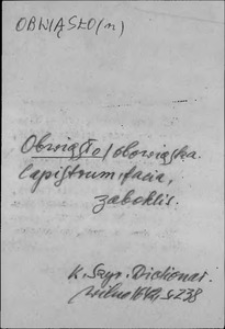 OBWIĄSŁO(n)
Obwiąsło / obowiąska.
Capistrum, facia,
zaboklis.
K. Szyr. Dictionar.
Wilno 1642, s. 238